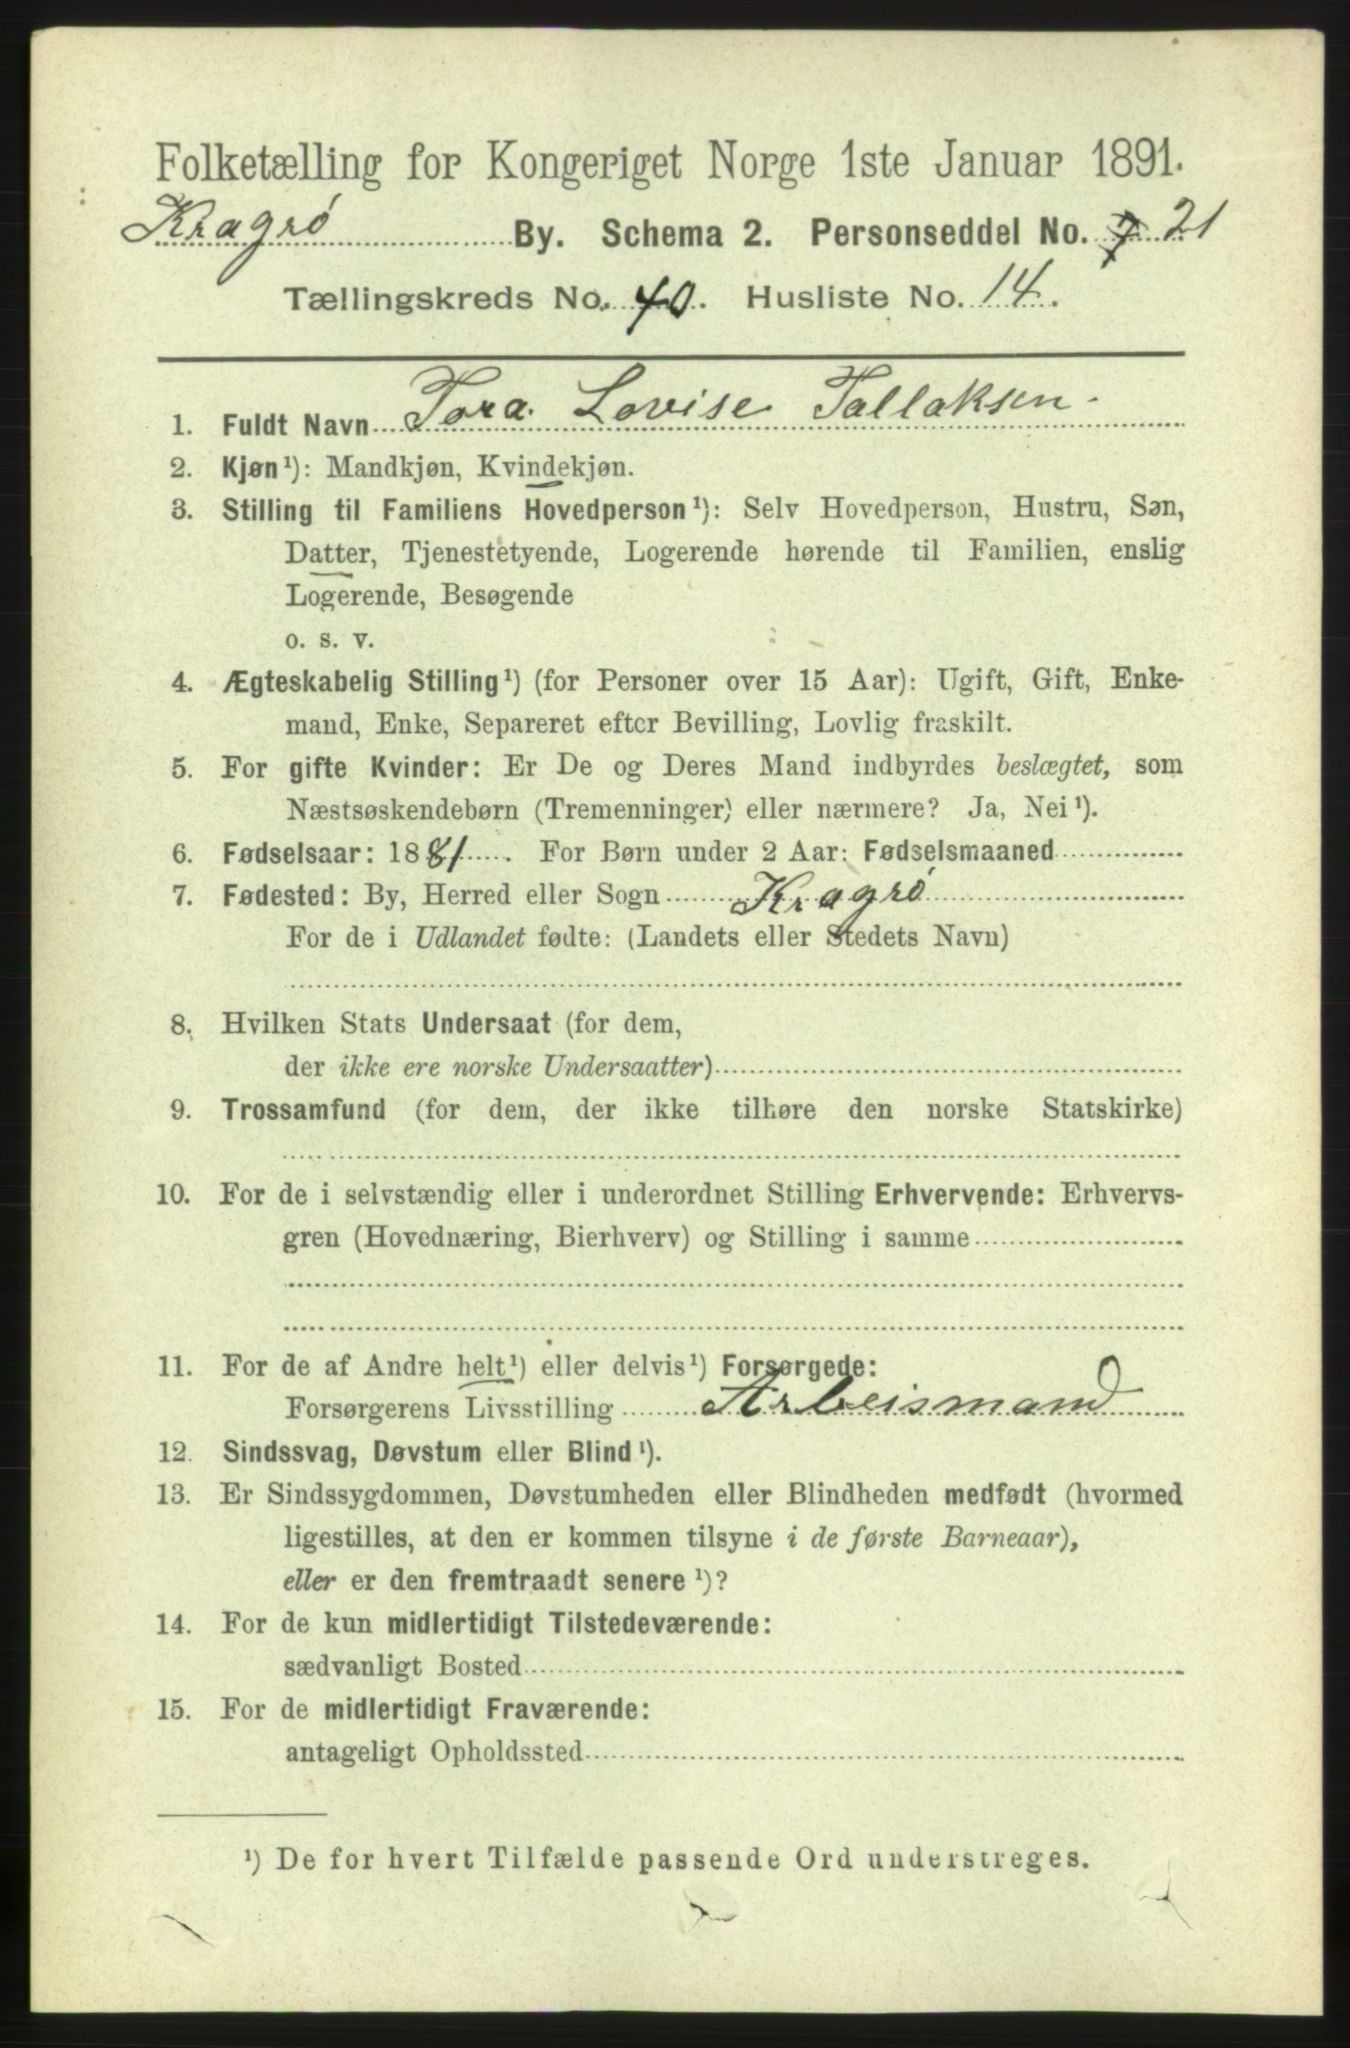 Folketælling for Kongeriget Norge 1ste Januar 1891.
Kragrø By. Schema 2. Personseddel No. 7 21
Tællingskreds No. 40. Husliste No. 14.
1. Fuldt Navn Tora Lovise Tallaksen
2. Kjøn¹): Mandkjøn, Kvindekjøn.
3. Stilling til Familiens Hovedperson¹): Selv Hovedperson, Hustru, Søn,
Datter, Tjenestetyende, Logerende hørende til Familien, enslig
Logerende, Besøgende
o. s. v.
4. Ægteskabelig Stilling¹) (for Personer over 15 Aar): Ugift, Gift, Enke-
mand, Enke, Separeret efter Bevilling, Lovlig fraskilt.
5. For gifte Kvinder: Er De og Deres Mand indbyrdes beslægtet, som
Næstsøskendebørn (Tremenninger) eller nærmere? Ja, Nei¹).
6. Fødselsaar: 1881. For Børn under 2 Aar: Fødselsmaaned
7. Fødested: By, Herred eller Sogn Kragrø
For de i Udlandet fødte: (Landets eller Stedets Navn)
8. Hvilken Stats Undersaat (for dem,
der ikke ere norske Undersaatter)
9. Trossamfund (for dem, der ikke tilhøre den norske Statskirke)
10. For de i selvstændig eller i underordnet Stilling Erhvervende: Erhvervs-
gren (Hovednæring, Bierhverv) og Stilling i samme
11. For de af Andre helt¹) eller delvis¹) Forsørgede:
Forsørgerens Livsstilling Arbeismand
12. Sindssvag, Døvstum eller Blind¹).
13. Er Sindssygdommen, Døvstumheden eller Blindheden medfødt (hvormed
ligestilles, at den er kommen tilsyne i de første Barneaar),
eller er den fremtraadt senere¹)?
14. For de kun midlertidigt Tilstedeværende:
sædvanligt Bosted
15. For de midlertidigt Fraværende:
antageligt Opholdssted
¹) De for hvert Tilfælde passende Ord understreges.